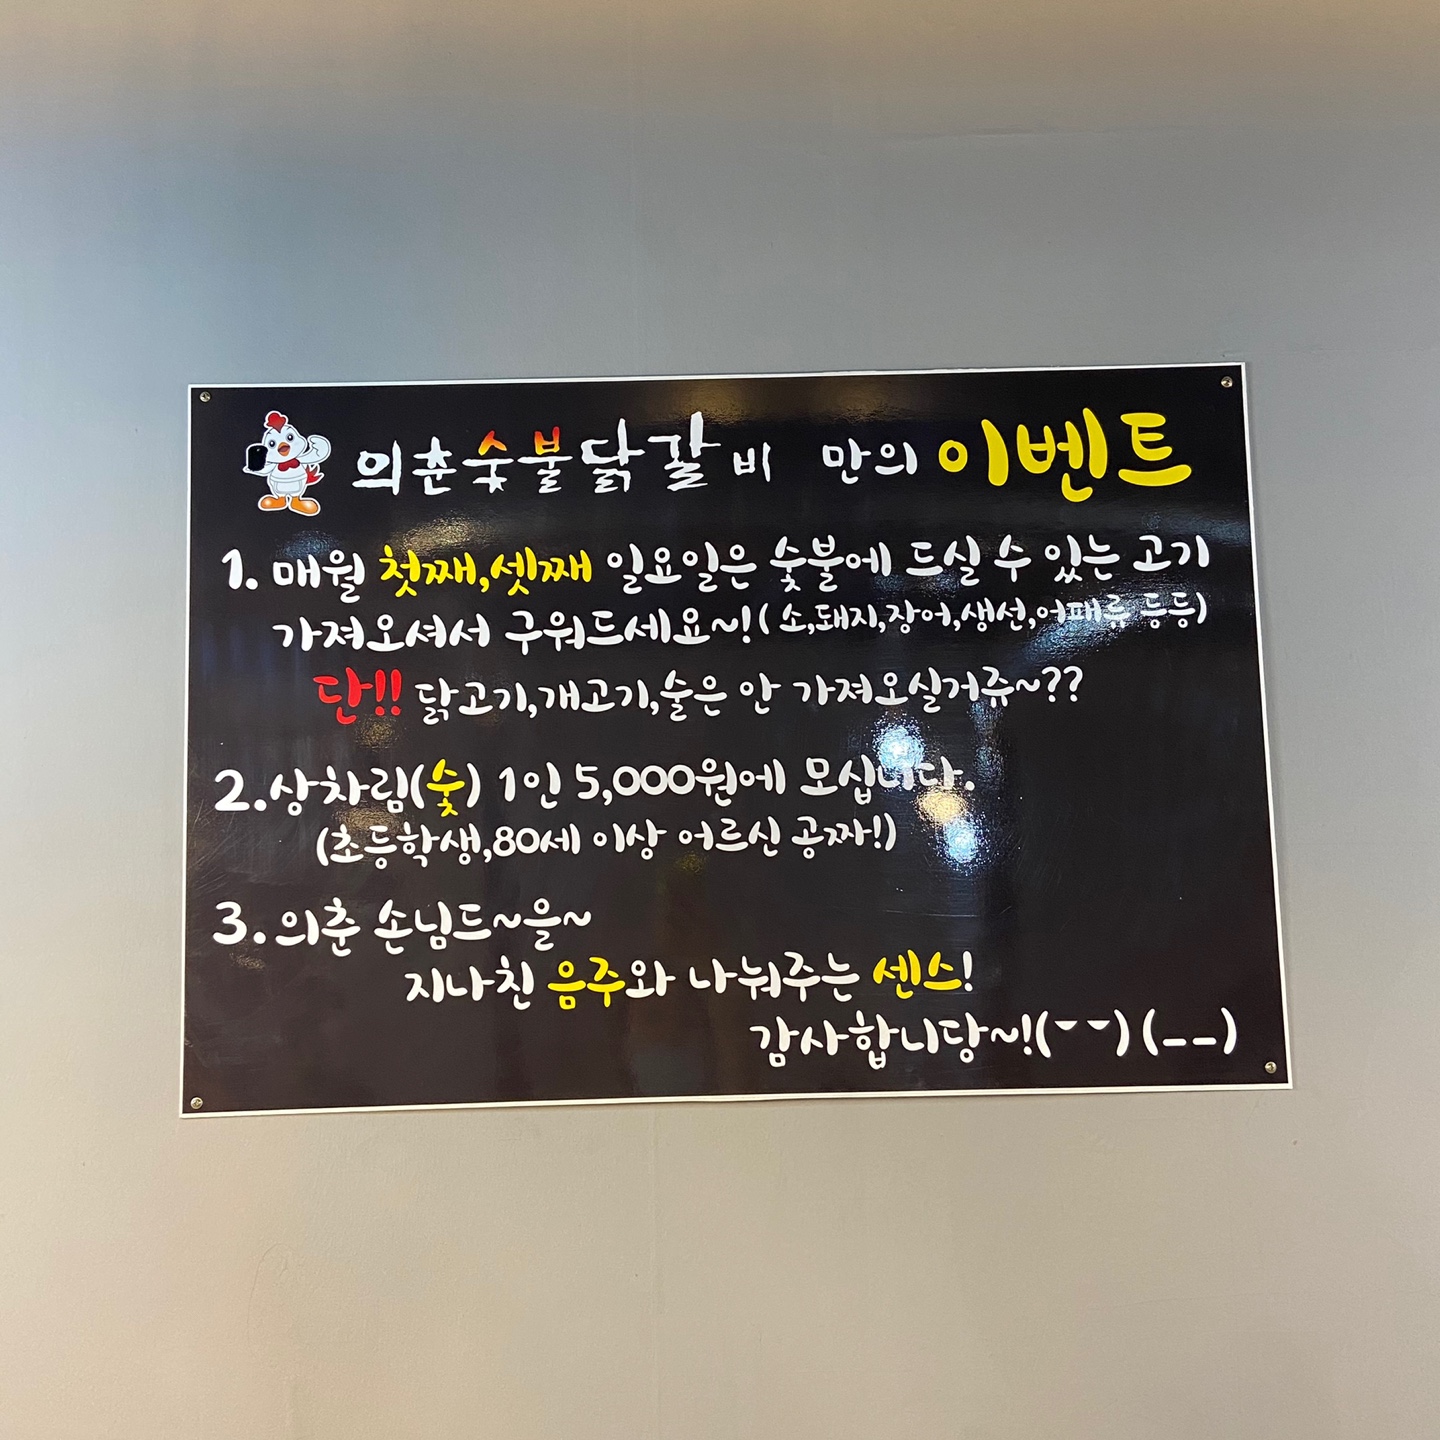 의춘숯불닭갈비 만의 이벤트
1. 매월 첫째,셋째 일요일은 숯불에 드실 수 있는 고기
가져오셔서 구워드세요~!(소,돼지,장어,생선,어패류 등등)
단!! 닭고기,개고기,술은 안 가져오실거쥬~??
2.상차림(숯) 1인 5,000원에 모십니다.
(초등학생,80세 이상 어르신 공짜!)
3.의춘 손님드~을~
지나친 음주와 나눠주는 센스!
감사합니당~!(ˇˇ)(__)